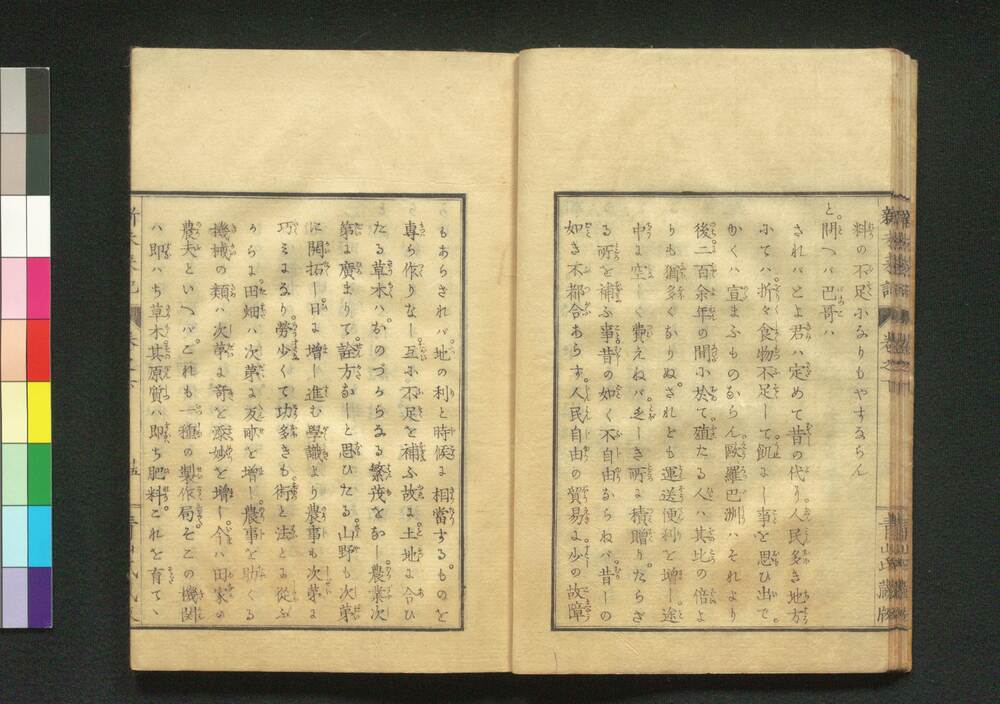 料の不足小なりもやするらん
と。問へバ巴哥ハ
されバとよ君ハ定めて昔の代より人民多き地方
にてハ。折々食物不足して飢えし事を思ひ出で。
かくハ宣まふものならん。歐羅巴洲ハそれより
後二百余年の間小於て。殖たる人ハ其比の倍よ
りも猶多くなりぬ。されども運送便利を増し。途
中よ空しく費えねバ。乏しき所よ積贈り。たらざ
る所を補ふ事。昔の如く不自由ならねバ。昔しの
如き不都合あらす。人民自由の貿易よ少の故障
もあらされバ。地の利と時候よ相當するものを
専ら作りなし。互に不足を補ふ故よ土地よ合ひ
たる草木ハおのづからなる繁茂をなし。農業次
第よ廣まりて。詮方なしと思ひたる山野も次第
に開拓し。日よ増し進む學識より農事も次第よ
巧ミになり。勞少くて功多きも術と法とよ從ふ
からよ。田畑ハ次第よ反畝を増し。農事を助くる
機械の類ハ次第よ奇を添妙を増し。今ハ田家の
農夫といへバ。これも一種の製作局そこの機関
ハ即ハち草木其原質ハ即ち肥料。これを育てゝ
新未来記 巻之下
青山氏蔵版